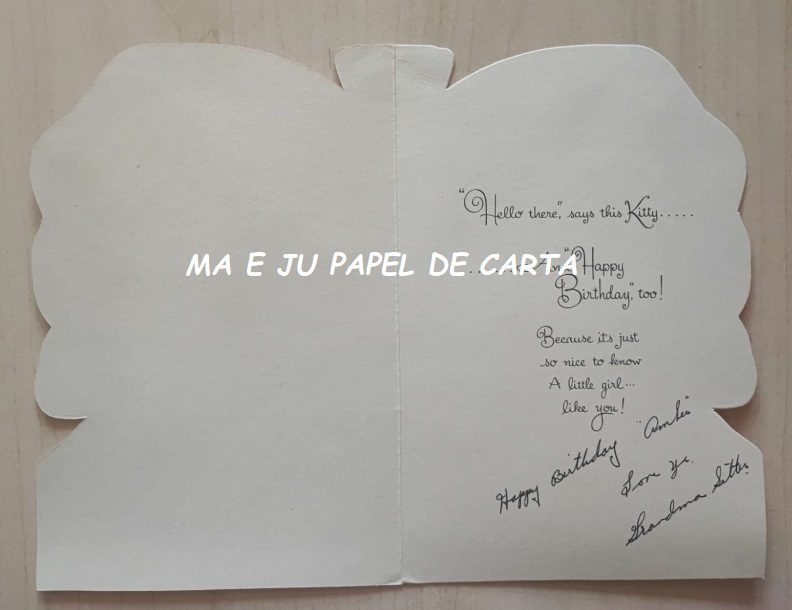 "Hello there," says this Kitty.....
MA E JU PAPEL DE CARTA
"Happy
Birthday," too!
Because it's just
so nice to know
A little girl...
like you!
Happy Birthday
Love Ya
Grandma